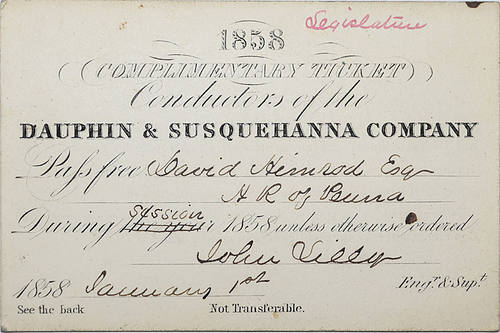 Legislature
1858
(COMPLIMENTARY TICKET)
Conductors of the
DAUPHIN & SUSQUEHANNA COMPANY
Pass free David Himrod Esq
H R of Penna
During the year Session 1858 unless otherwise ordered
John Lilly
1858 January 1st Engr. & Supt.
See the back Not Transferable.